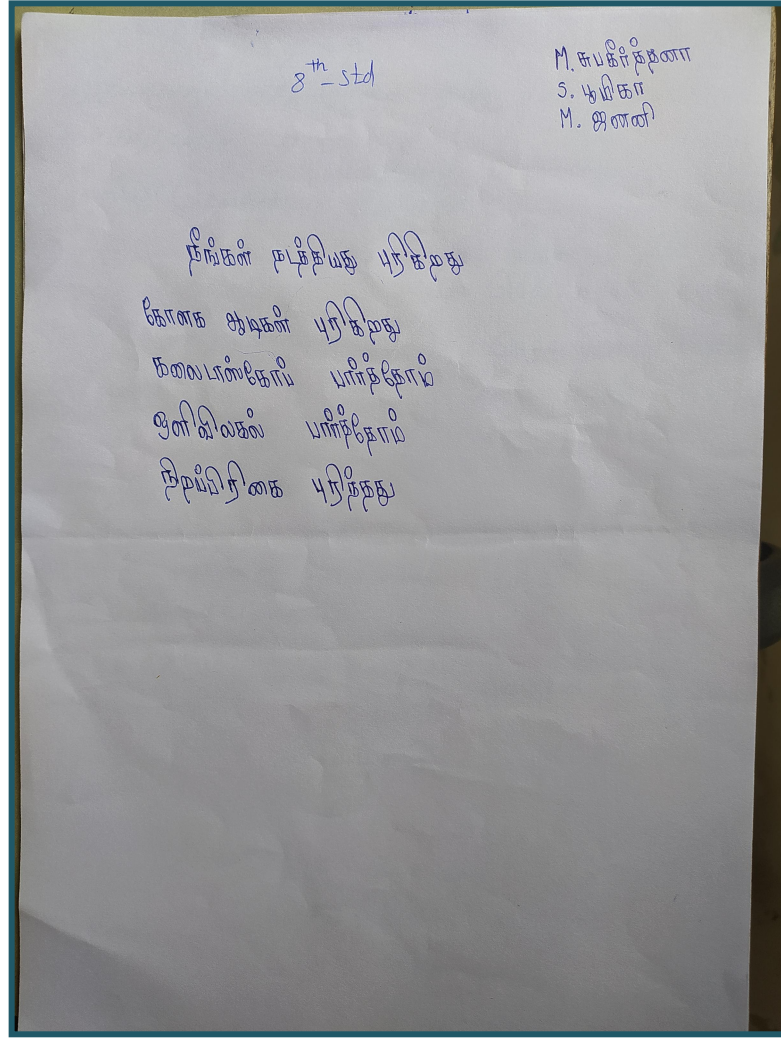 8th - std
M. சுபகீர்த்தனா
S. பூமிகா
M. ஜனனி
நீங்கள் நடத்தியது புரிகிறது
கோளக ஆடிகள் புரிகிறது
கலைடாஸ்கோப் பார்த்தோம்
ஒளிவிலகல் பார்த்தோம்
நிறப்பிரிகை புரிந்தது